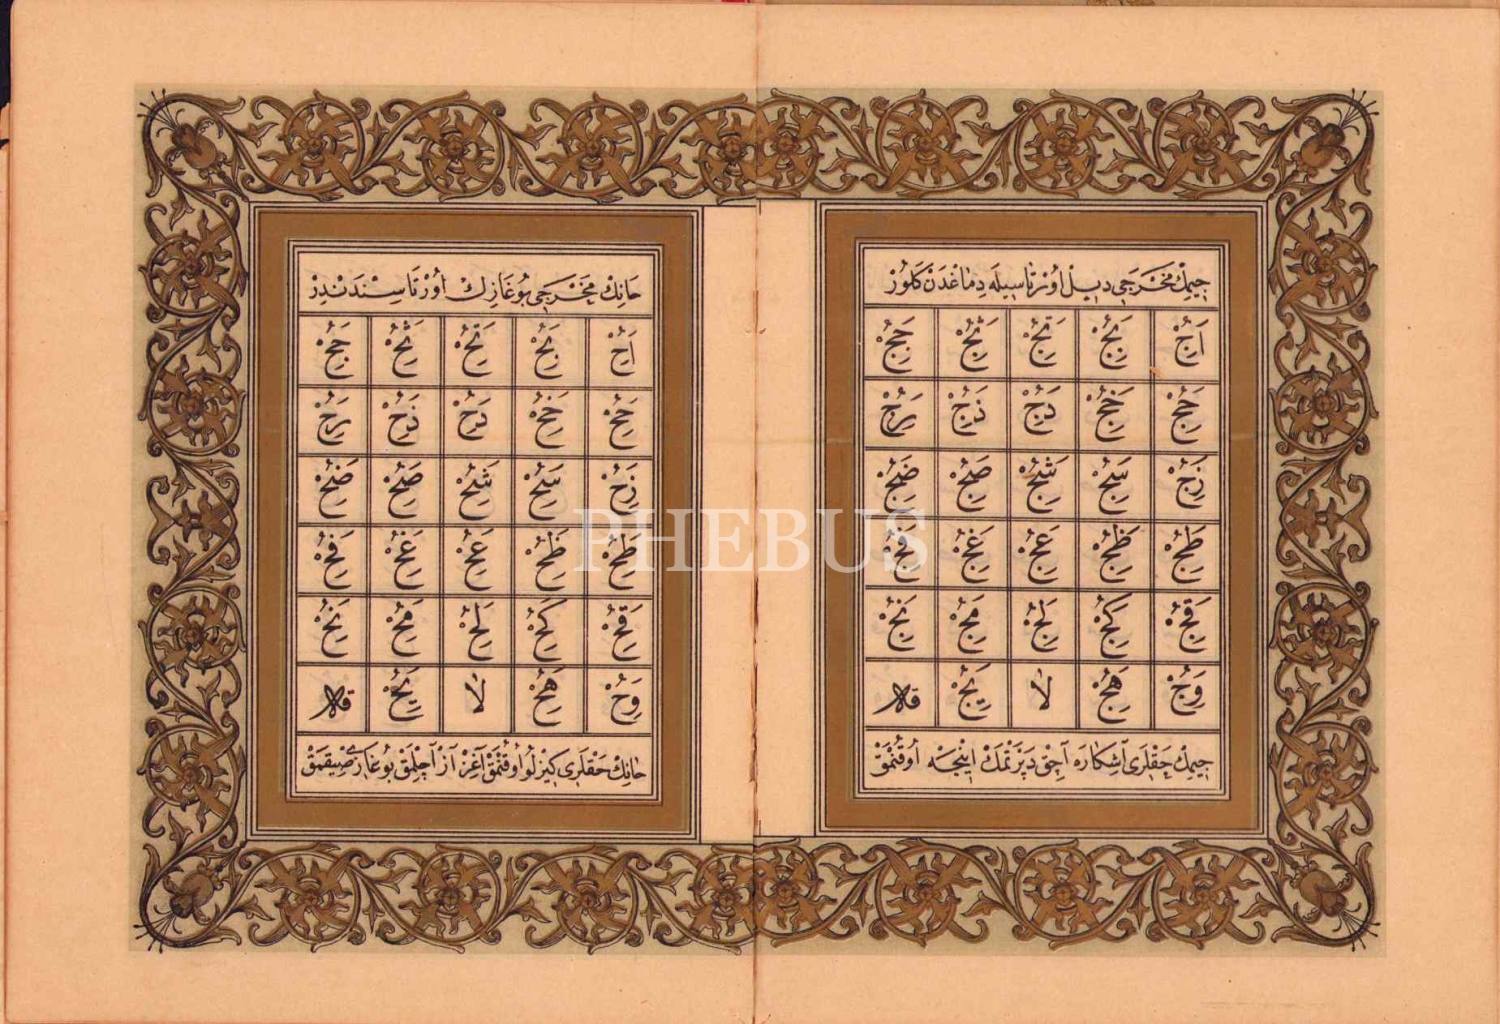 جِيمِكْ مَخْرَجِي دِيلْ اُورْتَاسِيلَه دِمَاغْدَنْ كَلُورْ
اج بج تج ثج جج
حج خج دج ذج رج
زج سج شج صج ضج
طج ظج عج غج فج
قج كج لج مج نج
وج هج لا يج
جِيمِكْ حَقْلَرِي آشِكَارَه آچِقْ دَپْرَتْمَكْ اِينْجَه اُوقُنْمَقْ
حَانِكْ مَخْرَجِي بُوغَازِكْ اُورْتَاسِنْدَنْدِرْ
اح بح تح ثح جح
حح خح دح ذح رح
زح سح شح صح ضح
طح ظح عح غح فح
قح كح لح مح نح
وح هح لا يح
حَانِكْ حَقْلَرِي كِيزْلُو اُوقُنْمَقْ آغِزْ آزْ آچِلْمَقْ بُوغَازِي صِيقْمَقْ
PHEBUS